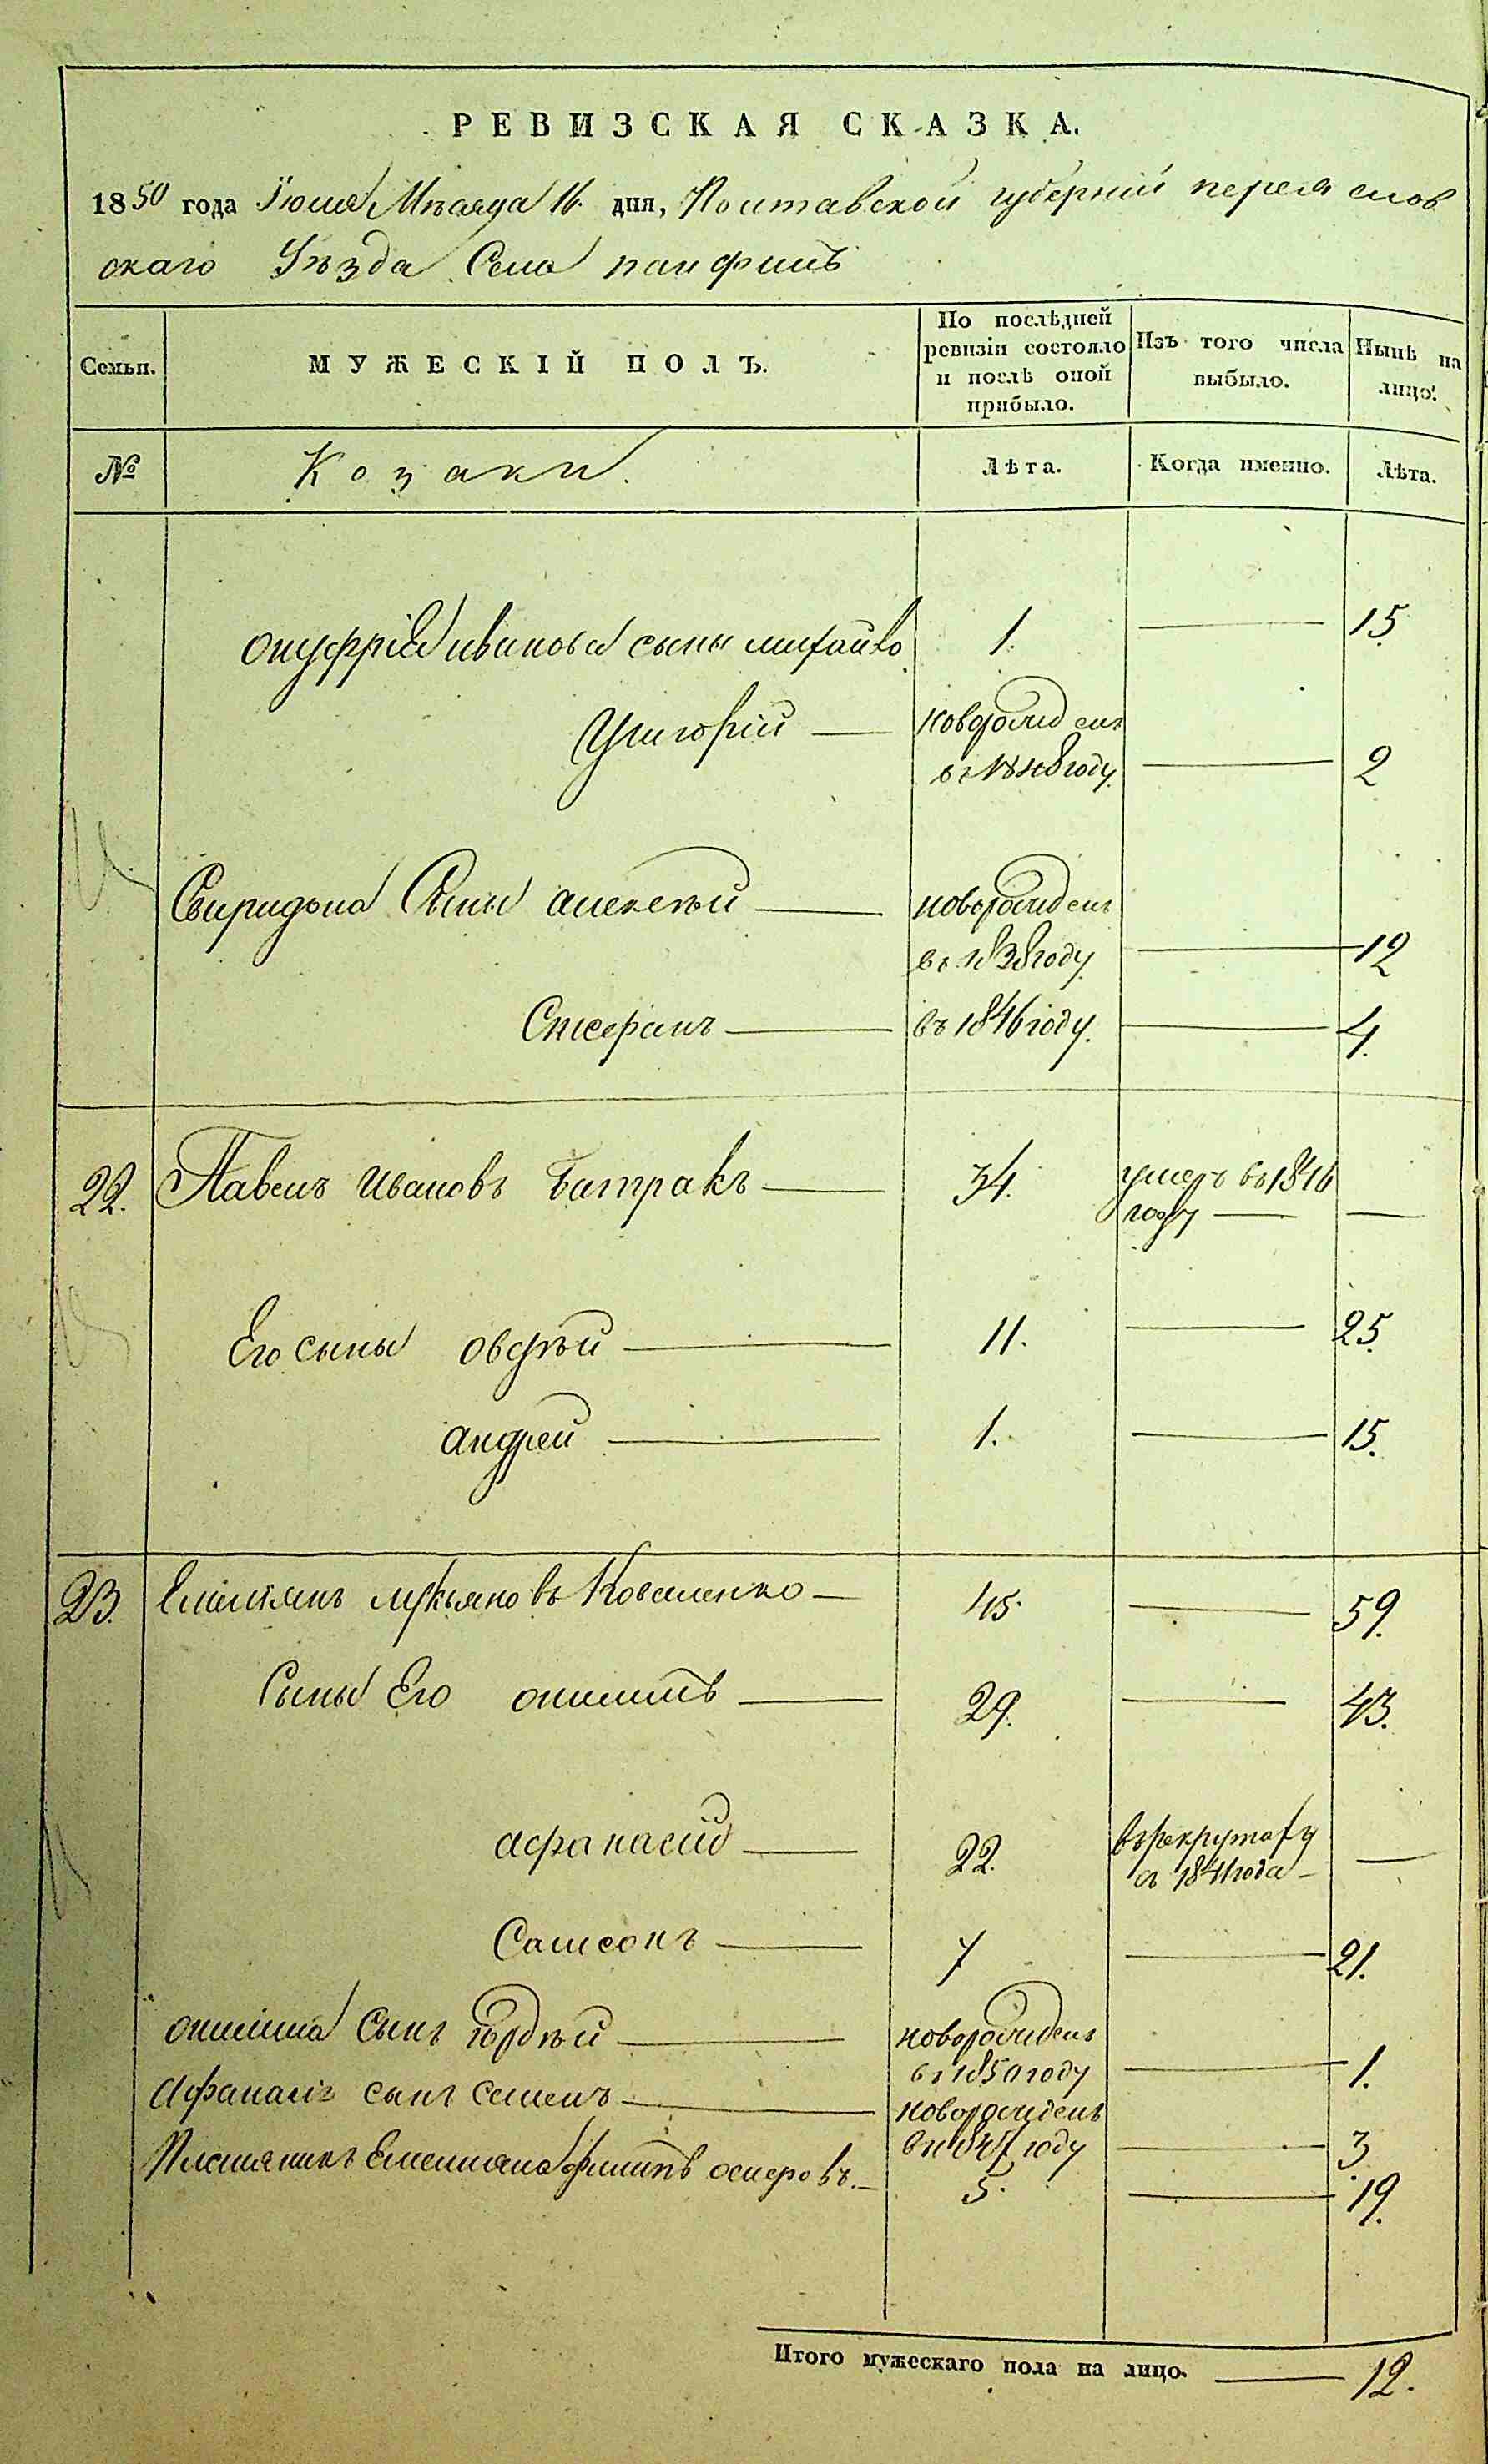 РЕВИЗСКАЯ СКАЗКА.
1850 года Іюля Мѣсяца 16 дня, Полтавской губерніи переяслов
скаго Уѣзда Села панфилъ
Семьи.
МУЖЕСКІЙ ПОЛЪ.
По послѣдней ревизіи состояло и послѣ оной прибыло.
Изъ того числа выбыло.
Нынѣ на лицо.
№ Козаки. Лѣта. Когда именно. Лѣта.
онуфрія иванова сыны михайло 1. 15.
Григорій новорожденъ
въ 1848 году. 2
Свиридона Сыны алексѣй новорожденъ
въ 1838 году 12
Стефанъ въ 1846 году. 4.
22. Павелъ Ивановъ Батракъ 34. умеръ въ 1846
году
Его сыны оверѣй 11. 25.
андрей 1. 15.
23. Емелiянъ лукьяновъ Коваленко 45. 59.
Сыны Его онисимъ 29. 43.
афанасій 22. въ рекрутахъ
съ 1841 года
Самсонъ 7 21.
онисима Сынъ гордѣй новорожденъ
въ 1850 году 1.
Афанасія сынъ семенъ новорожденъ
в 1847 году 3.
Племяникъ Емелиана филипъ осиповъ. 5. 19.
Итого мужескаго пола на лицо. 12.